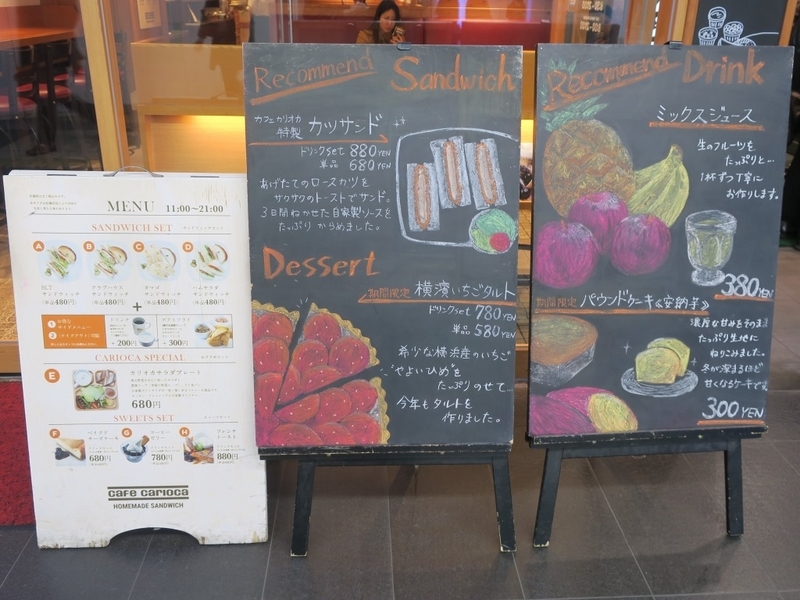 MENU 11:00~21:00
SANDWICH SET
A B C D
BLT
サンドウィッチ
480円
アボカドハム
サンドウィッチ
480円
サンドウィッチ
480円
ハムサラダ
サンドウィッチ
480円
+
1
2
+200円
+300円
CARIOCA SPECIAL
E
カリオカサラダプレート
680円
SWEETS SET
F G H
チーズケーキ
680円
コーヒー
ゼリー
780円
880円
cafe carioca
HOMEMADE SANDWICH
Recommend Sandwich
カフェカリオカ
特製 カツサンド
ドリンクset 880YEN
単品 680YEN
あげたてのロースカツを
サクサクのトーストでサンド。
3日間ねかせた自家製ソースを
たっぷりからめました。
Dessert
期間限定 横濱いちごタルト
ドリンクset 780YEN
単品 580YEN
希少な横浜産のいちご
"やよいひめ"を
たっぷりのせて…
今年もタルトを
作りました。
Recommend Drink
ミックスジュース
生のフルーツを
たっぷりと…
1杯ずつ丁寧に
お作りします。
380YEN
期間限定 パウンドケーキ《安納芋》
濃厚な甘みをそのまま
たっぷり生地に
ねりこみました。
冬が深まるほど
甘くなるケーキです
300YEN